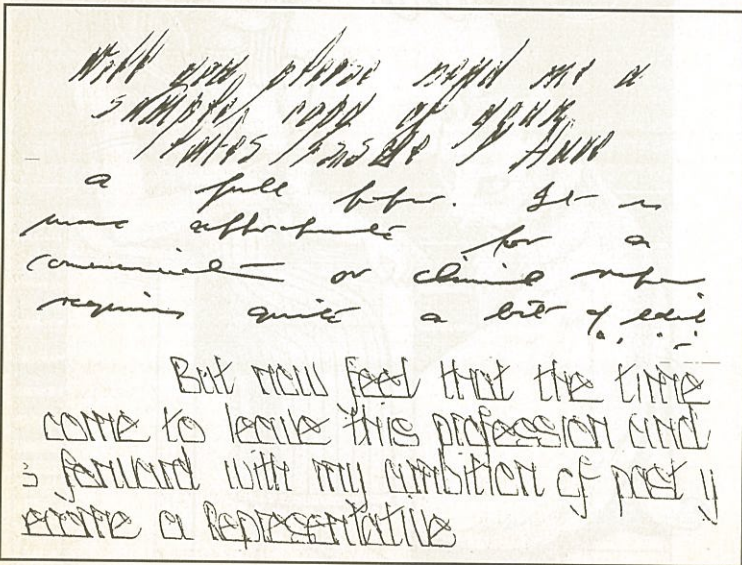 Will you please send me a
sample copy of your
rates I have
a full before. It is
more appropriate for a
commercial or clinical
requires quite a bit of
But now feel that the time
come to leave this profession and
s forward with my ambition of past y
a Representative